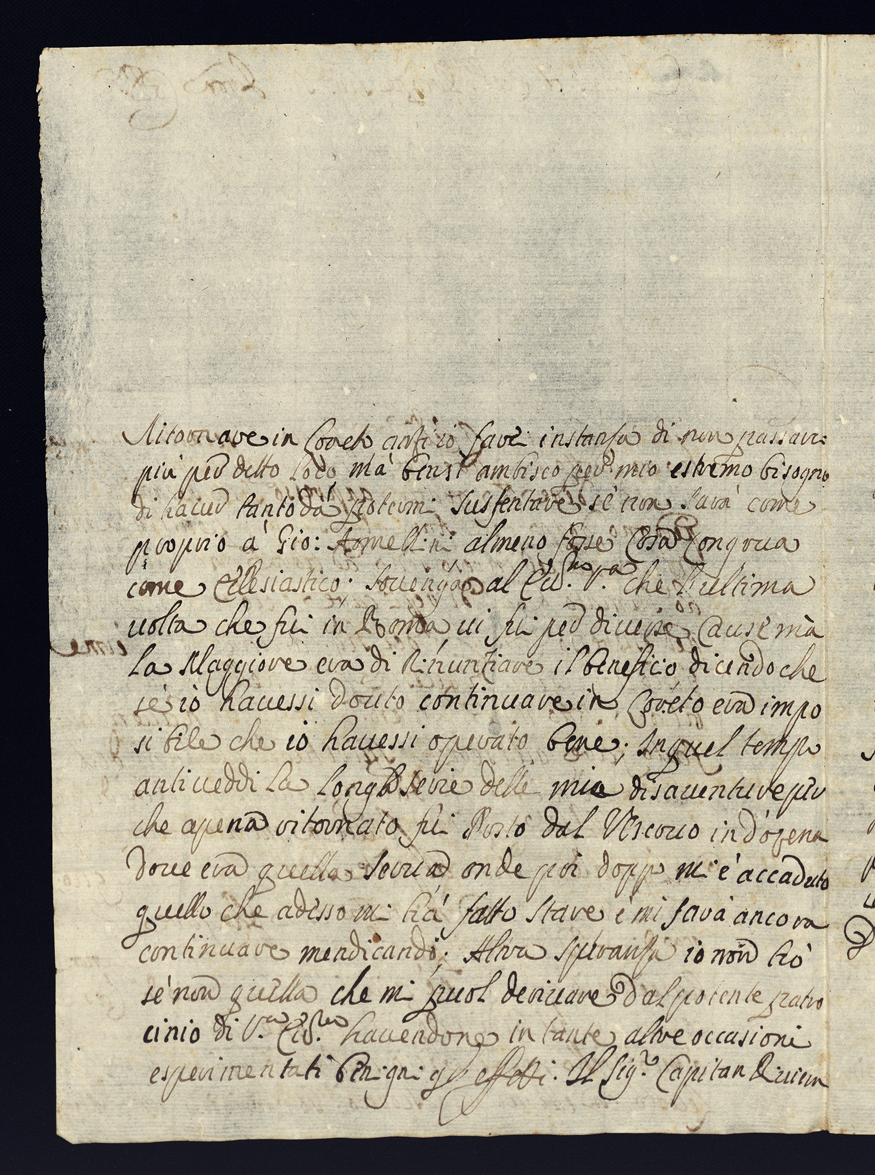 Ritornare in Coveto anzi io farei instanza di non passare
più per detto Lodo mà bensi ambisco per mio estremo bisogno
di haver tanto da potermi sustentare sè non sarà come
proprio à Gio: Armellini almeno fosse Cosa Congrua
come Eclesiastico; Sovenga al che l'ultima
volta che fui in Roma vi fui per diverse Cause mà
La Maggiore era di Rinuntiare il beneficio dicendo che
sè io havessi dovuto continuare in Coveto era impo
sibile che io havessi operato bene; In quel tempo
antiveddi La Longa Serie delle mie disaventure per
che apena ritornato fui Posto dal Vescovo in
Dove era quella onde poi doppo mi è accaduto
quello che adesso mi hà fatto stare è mi farà ancora
continuare mendicando; Altra speranza io non hò
sè non quella che mi puol derivare dal potente patro
cinio di V.ra havendone in tante altre occasioni
esperimentati benigni gli effetti. Il Sig.r Capitan